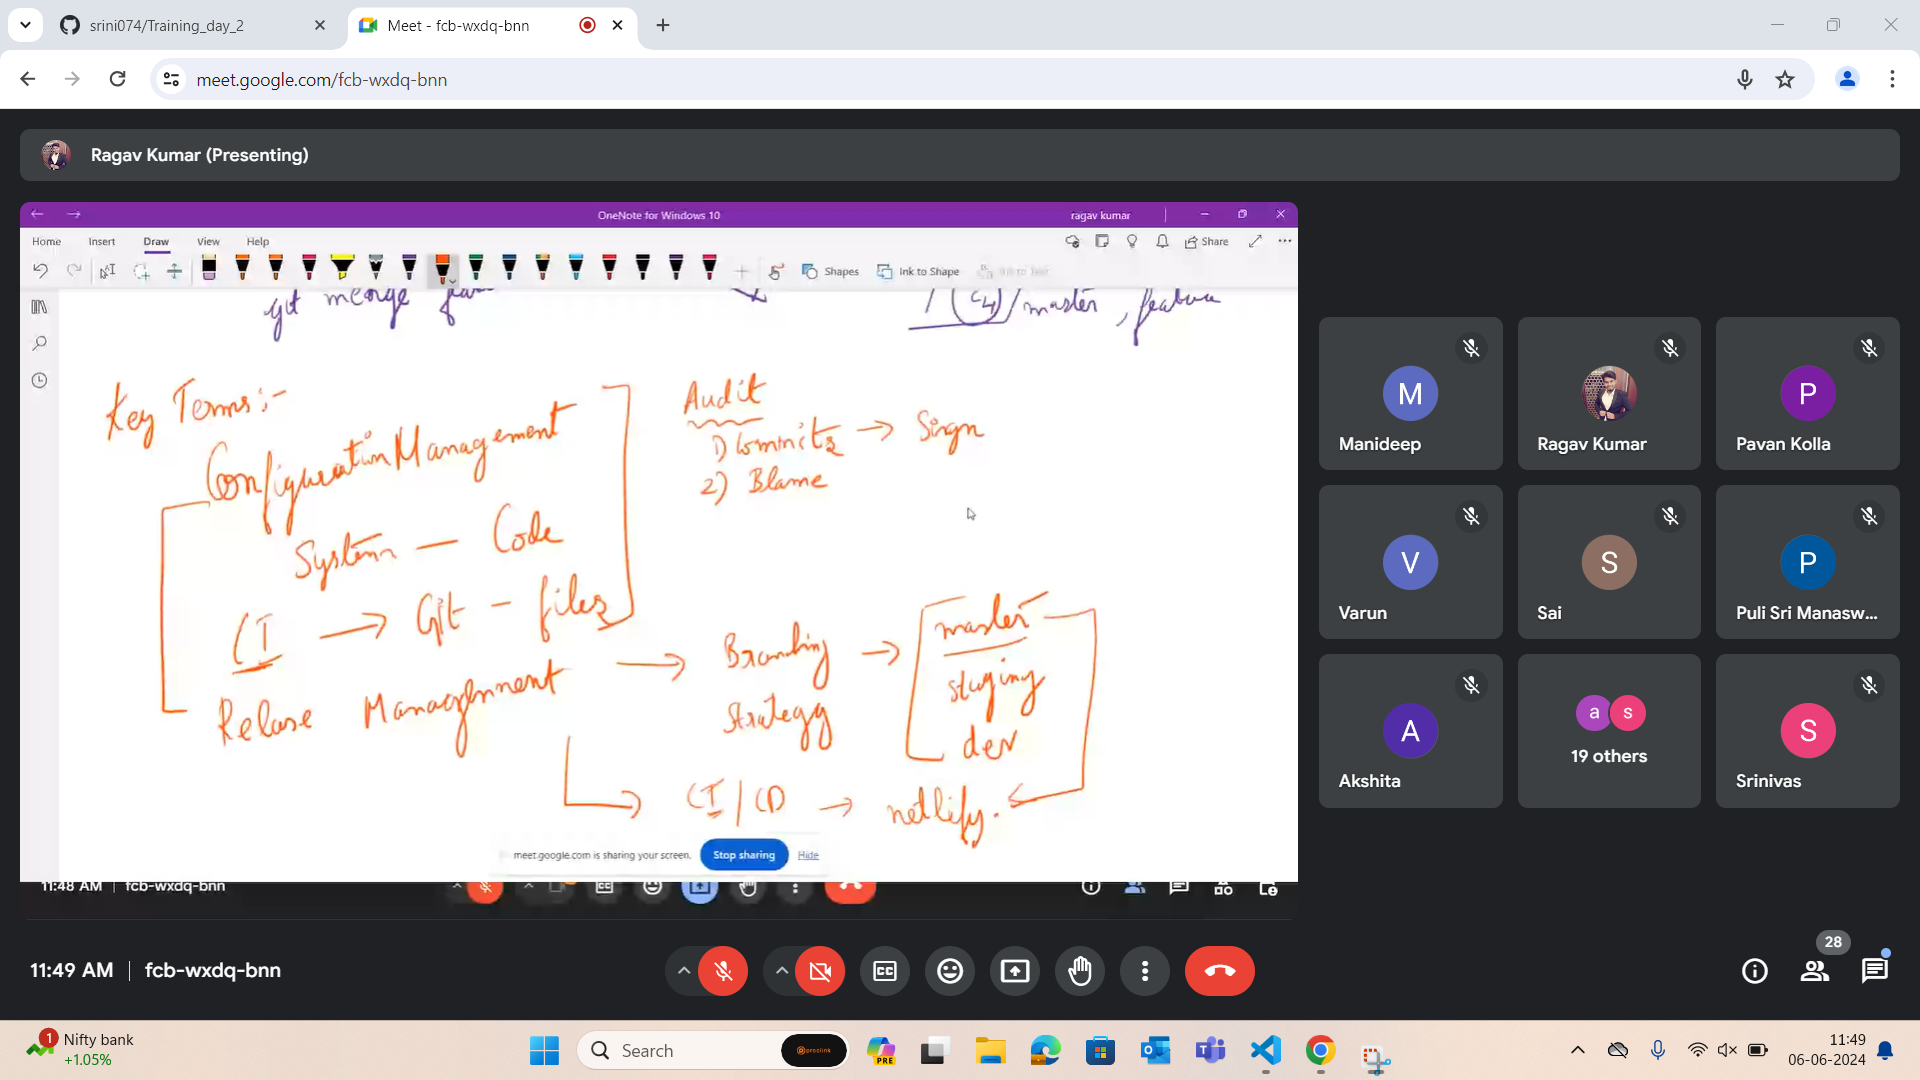 srini074/Training_day_2
Meet - fcb-wxdq-bnn
meet.google.com/fcb-wxdq-bnn
Ragav Kumar (Presenting)
OneNote for Windows 10
ragav kumar
Home Insert Draw View Help
Share
Shapes Ink to Shape
git merge
C4 / master , feature
Key Terms :-
Configuration Management
System — Code
CI → Git - files
Relase Management
Audit
1) Commits → Sign
2) Blame
→ Branding Strategy →
master
staging
dev
CI / CD → netlify.
meet.google.com is sharing your screen. Stop sharing Hide
11:48 AM | fcb-wxdq-bnn
M
Manideep
Ragav Kumar
P
Pavan Kolla
V
Varun
S
Sai
P
Puli Sri Manasw...
A
Akshita
a s
19 others
S
Srinivas
11:49 AM | fcb-wxdq-bnn
28
1
Nifty bank
+1.05%
Search
PRE
11:49
06-06-2024